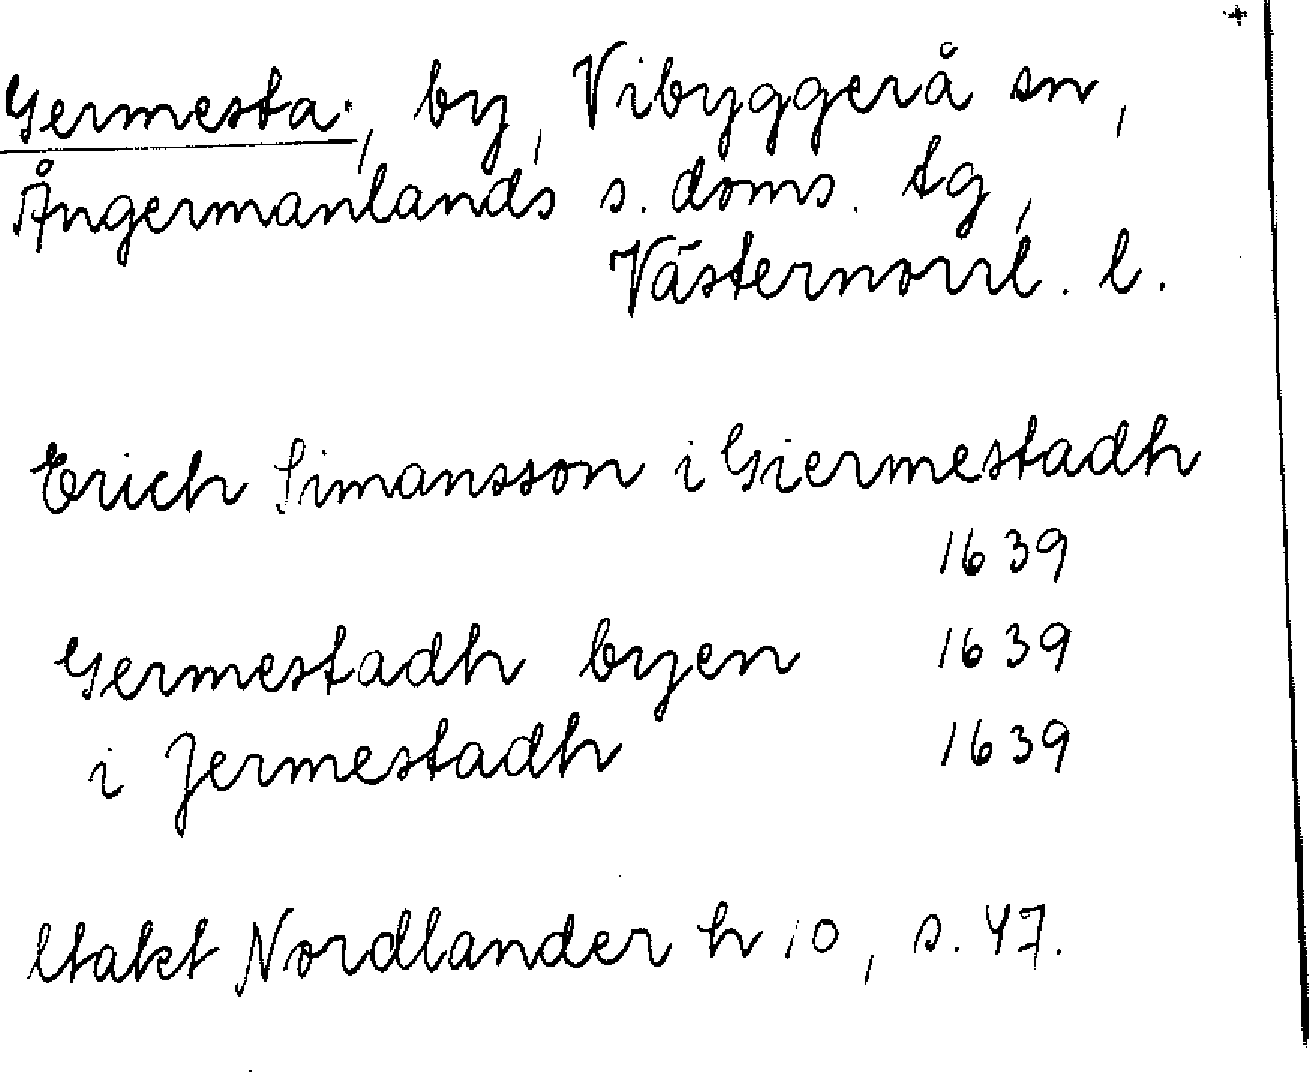 Germesta, by, Vibyggerå sn,
Ångermanlands s. doms. tg,
Västernorrl. l.
Erich Simansson i Giermestadh
1639
Germestadh byen 1639
i Jermestadh 1639
Nordlander h 10, s. 47.